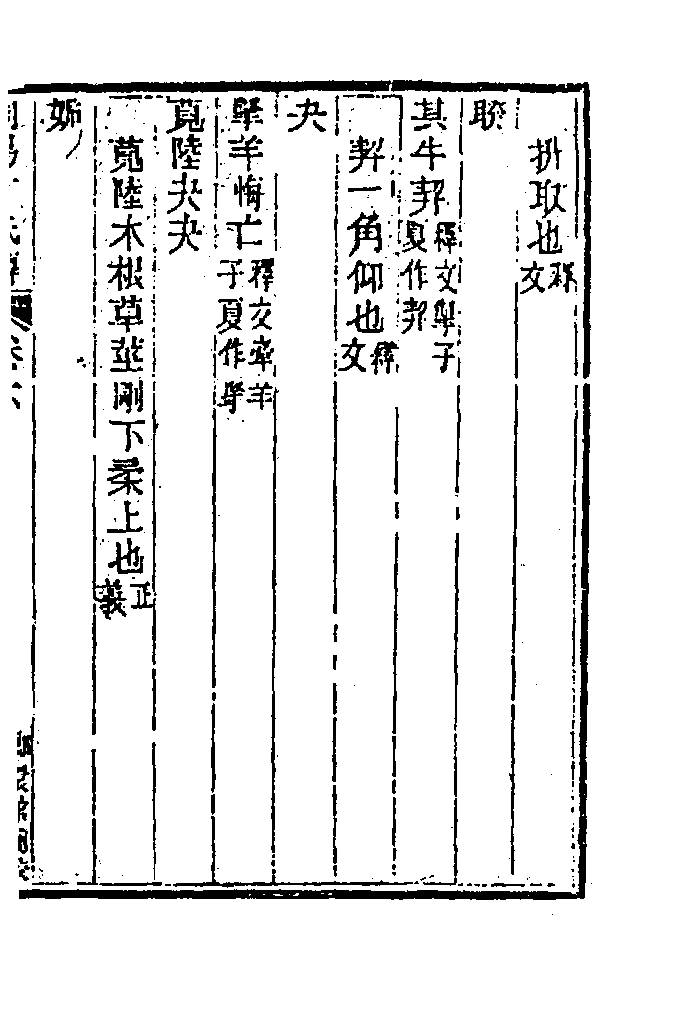 抍取也釋文
睽
其牛契釋文觢子夏作契
契一角仰也釋文
夬
掔羊悔亡釋文牽羊子夏作掔
莧陸夬夬
莧陸木根草莖剛下柔上也正義
姤